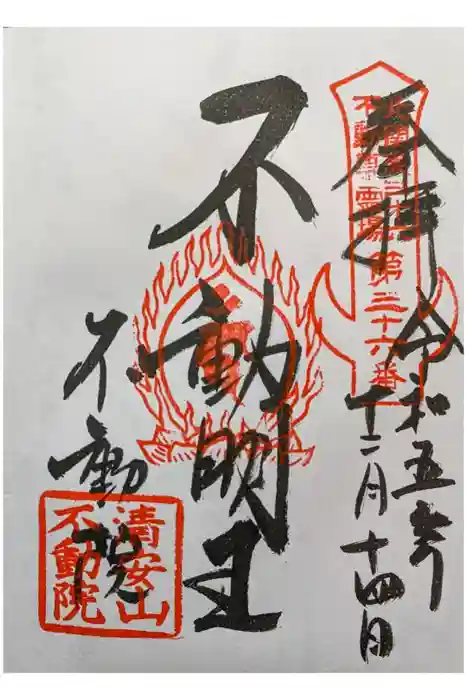 奉拝
北関東三十六
不動尊霊場
第三十六番
令和五年
十二月十四日
不動明王
不動院
清安山
不動院